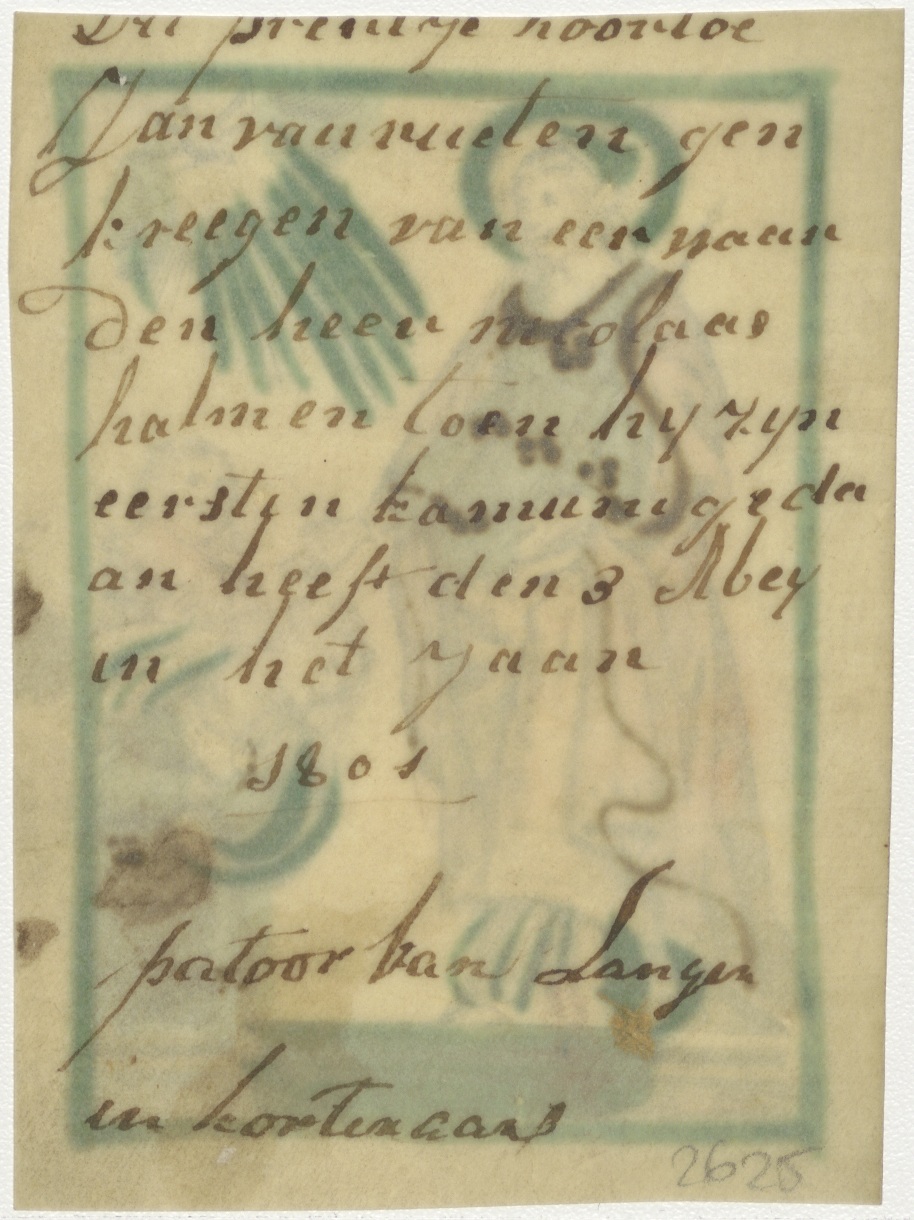 Dit prentje hoortoe
Jan van rueten gen
kreegen van eerwaan
den heer nicolaas
halmen toen hy zyn
eersten kamunigeda
an heeft den 3 Mey
in het yaar
1801
patoor van Langen
in kortenaans
2625